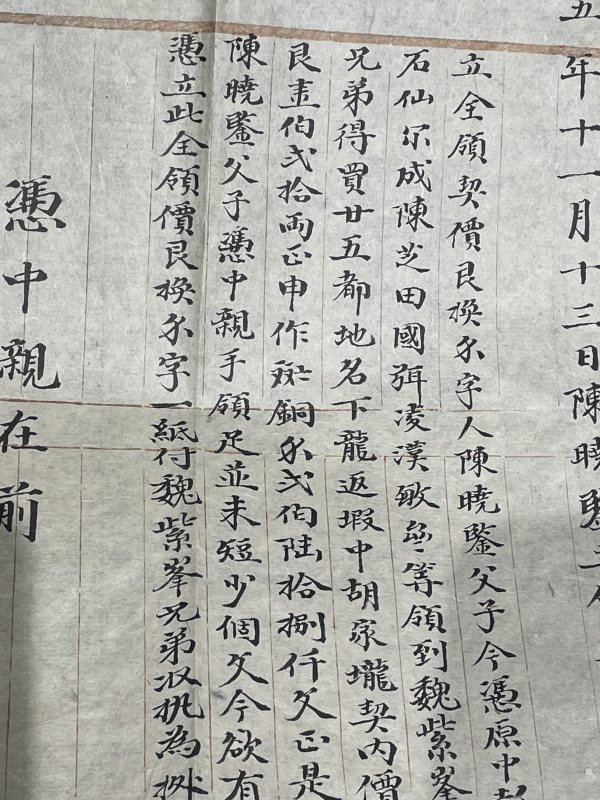 五年十一月十三日陳曉鋻
立全領契價艮換尒字人陳曉鋻父子今憑原中彭
石仙尔成陳芝田國弭凌漢敏等領到魏紫峯
兄弟得買廿五都地名下龍返塅中胡家壠契內價
艮壹伯弍拾兩正申作銅尒弍伯陸拾捌仟文正是
陳曉鋻父子憑中親手領足並未短少個文今欲有
憑立此全領價艮換尒字一紙付魏紫峯兄弟收执為
憑中親在前